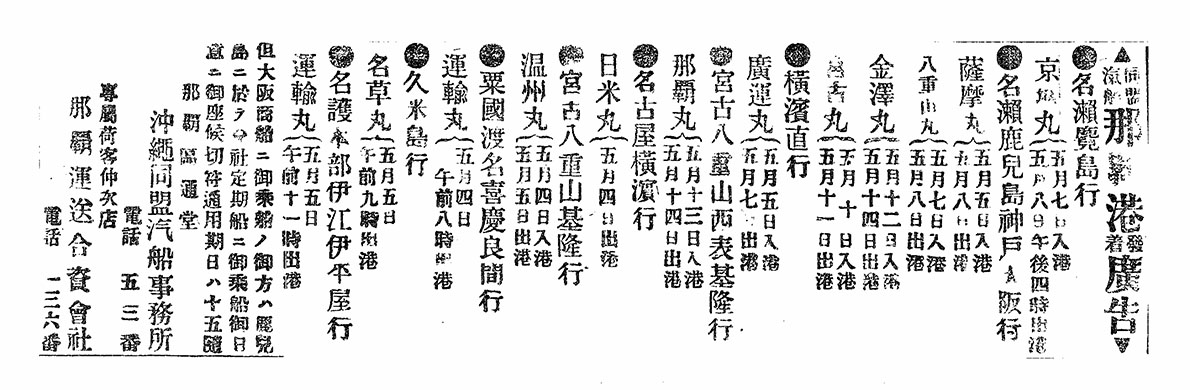 ▲同盟汽船那覇港發着廣告▼
●名瀨鹿島行
京城丸 五月七日入港
五月八日午後四時出港
●名瀨鹿兒島神戸大阪行
薩摩丸 五月五日入港
五月八日出港
八重山丸 五月七日入港
五月八日出港
金澤丸 五月十二日入港
五月十四日出港
宮古丸 五月十日入港
五月十一日出港
●橫濱直行
廣運丸 五月五日入港
五月七日出港
●宮古八重山西表基隆行
那覇丸 五月十三日入港
五月十四日出港
●名古屋橫濱行
日米丸 五月四日出港
●宮古八重山基隆行
温州丸 五月四日入港
五月五日出港
●粟國渡名喜慶良間行
運輸丸 五月四日
午前八時出港
●久米島行
名草丸 五月五日
午前九時出港
●名護本部伊江伊平屋行
運輸丸 五月五日
午前十一時出港
但大阪商船ニ御乘船ノ御方ハ鹿兒
島ニ於テ社定期船ニ御乘船御日
意ニ御座候切符通用期日ハ十五
那覇通堂
沖繩同盟汽船事務所
電話 五三番
專屬荷客仲次店
那覇運送合資會社
電話 一二六番